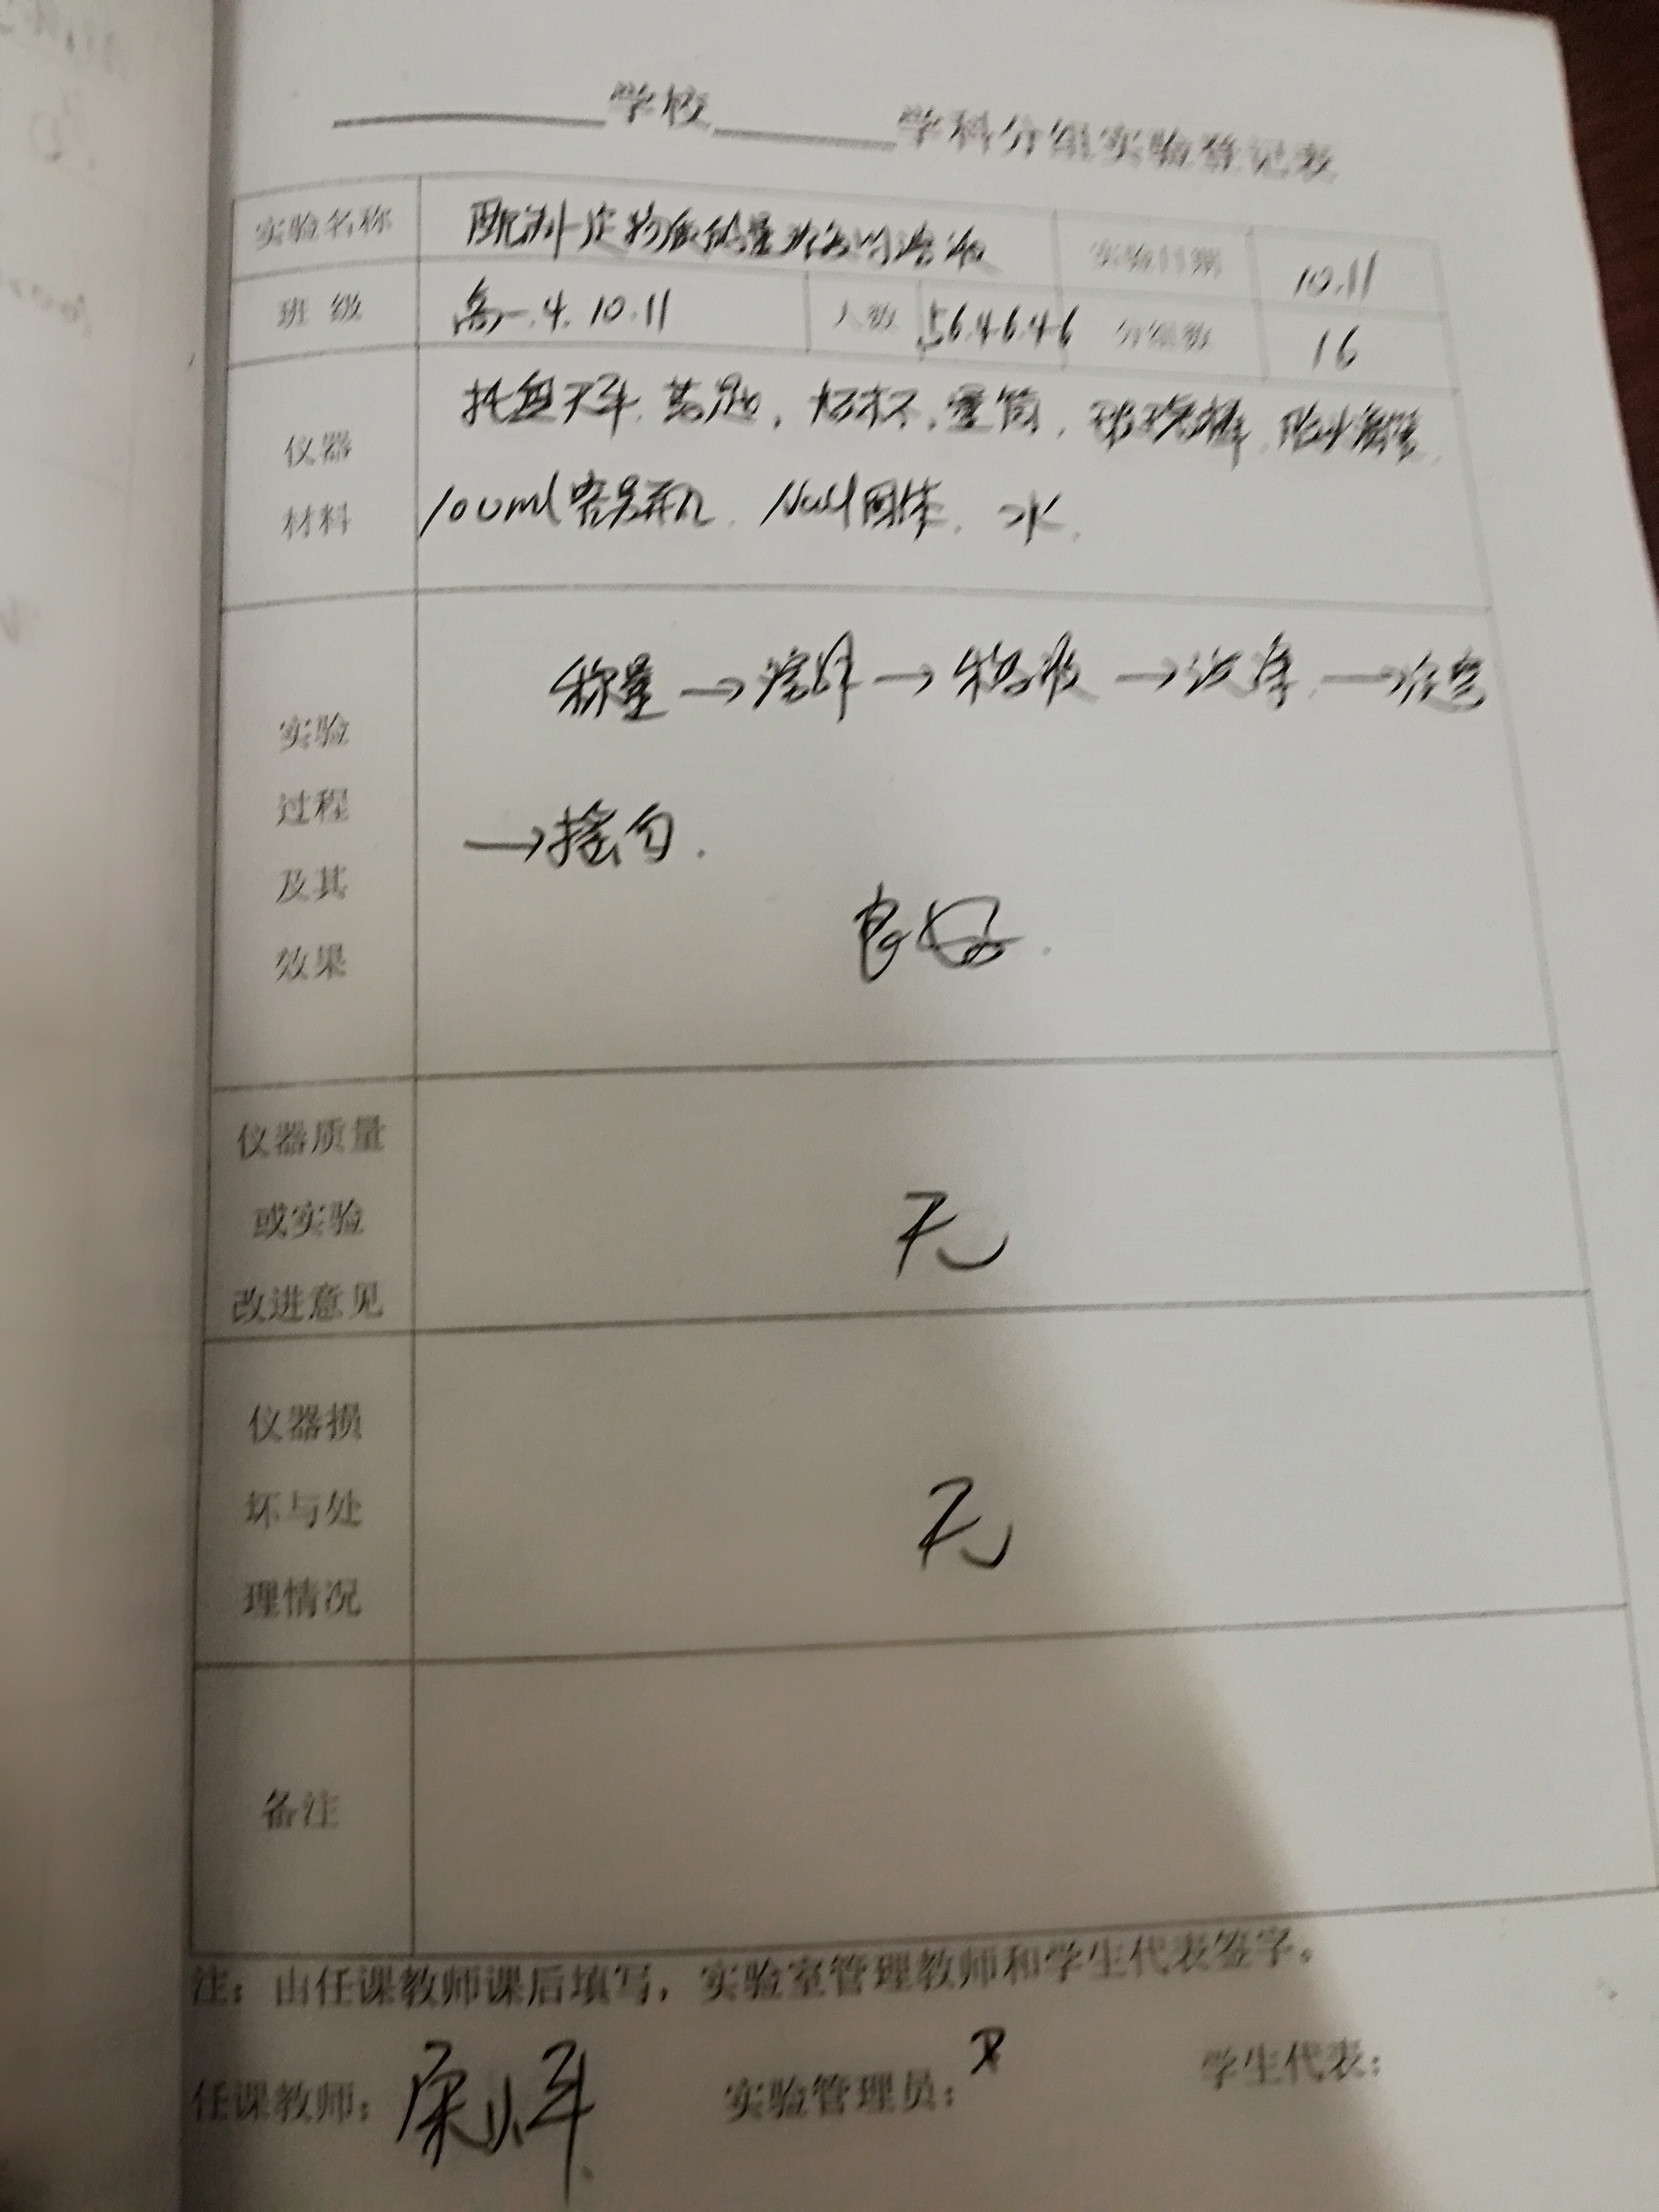 学校 学科分组实验登记表
实验名称 配制一定物质的量浓度的溶液 实验日期 10.11
班级 高一.4.10.11 人数 56.46.46 分组数 16
仪器 托盘天平.药匙.烧杯.量筒.玻璃棒.胶头滴管.
材料 100ml容量瓶.NaCl固体.水.
称量→溶解→移液→洗涤→定容
实验
过程 →摇匀.
及其 良好.
效果
仪器质量
或实验 无
改进意见
仪器损
坏与处 无
理情况
备注
注：由任课教师课后填写，实验室管理教师和学生代表签字。
任课教师： 实验管理员： 学生代表：